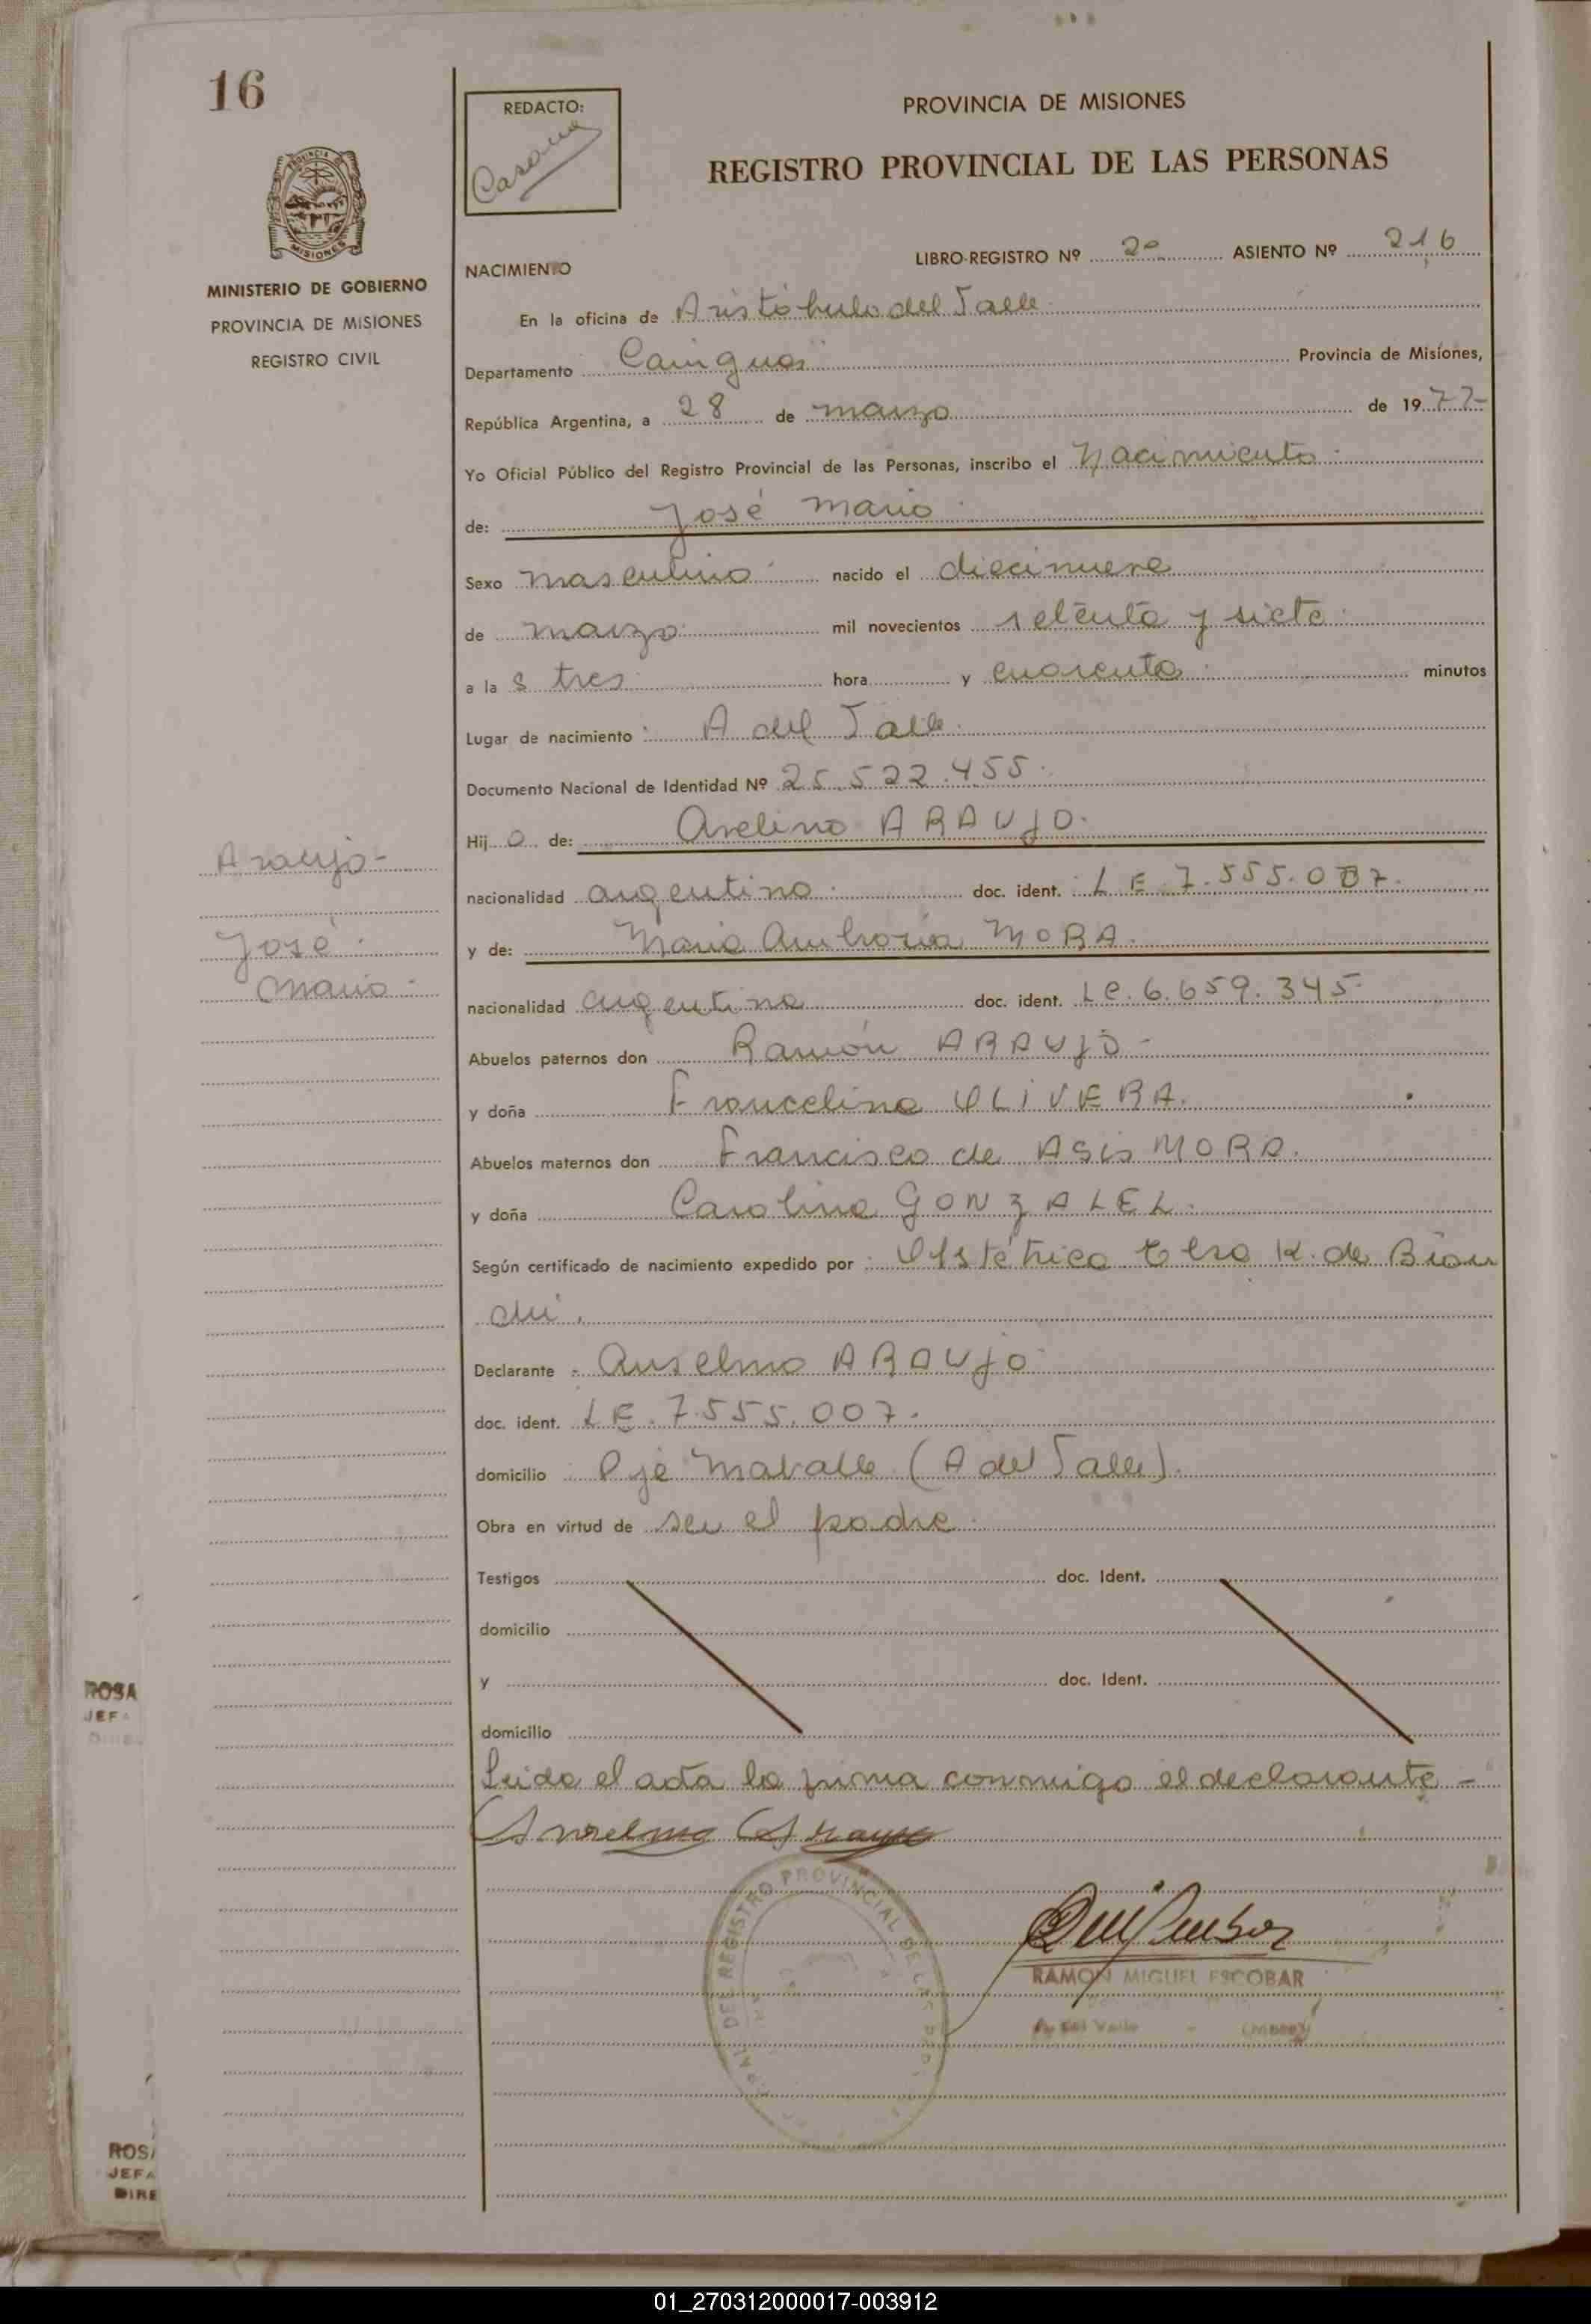 16
REDACTO:
Casana
PROVINCIA DE MISIONES
REGISTRO PROVINCIAL DE LAS PERSONAS
PROVINCIA DE
MISIONES
MINISTERIO DE GOBIERNO
PROVINCIA DE MISIONES
REGISTRO CIVIL
NACIMIENTO
LIBRO-REGISTRO Nº 2º ASIENTO Nº 216
En la oficina de Aristóbulo del Valle
Departamento Cainguás Provincia de Misiones,
República Argentina, a 28 de marzo de 1977-
Yo Oficial Público del Registro Provincial de las Personas, inscribo el Nacimiento
de: José Mario
Sexo masculino nacido el diecinueve
de marzo mil novecientos setenta y siete
a la s tres hora y cuarenta minutos
Lugar de nacimiento A del Valle
Documento Nacional de Identidad Nº 25.522.455
Hij o de: Avelino ARAUJO.
nacionalidad argentino doc. ident. L E. 7.555.007.
y de: María Ambrosia MORA.
nacionalidad argentina doc. ident. LC. 6.659.345
Abuelos paternos don Ramón ARAUJO -
y doña Francelina OLIVERA.
Abuelos maternos don Francisco de ASis MORA.
y doña Carolina GONZALEZ.
Según certificado de nacimiento expedido por Obstétrica Elsa K. de Bian
chi.
Declarante Anselmo ARAUJO
doc. ident. LE. 7.555.007.
domicilio Pje Mavalle (A del Valle).
Obra en virtud de ser el padre
Testigos doc. Ident.
domicilio
y doc. Ident.
domicilio
Leida el acta la firma conmigo el declarante -
Anselmo Araujo
Araujo-
José
Mario-
DEL REGISTRO PROVINCIAL DE LAS
RAMON MIGUEL ESCOBAR
A. del Valle - (Mnes)
ROSA
JEFA
ROSA
JEFA
DIRE
01_270312000017-003912